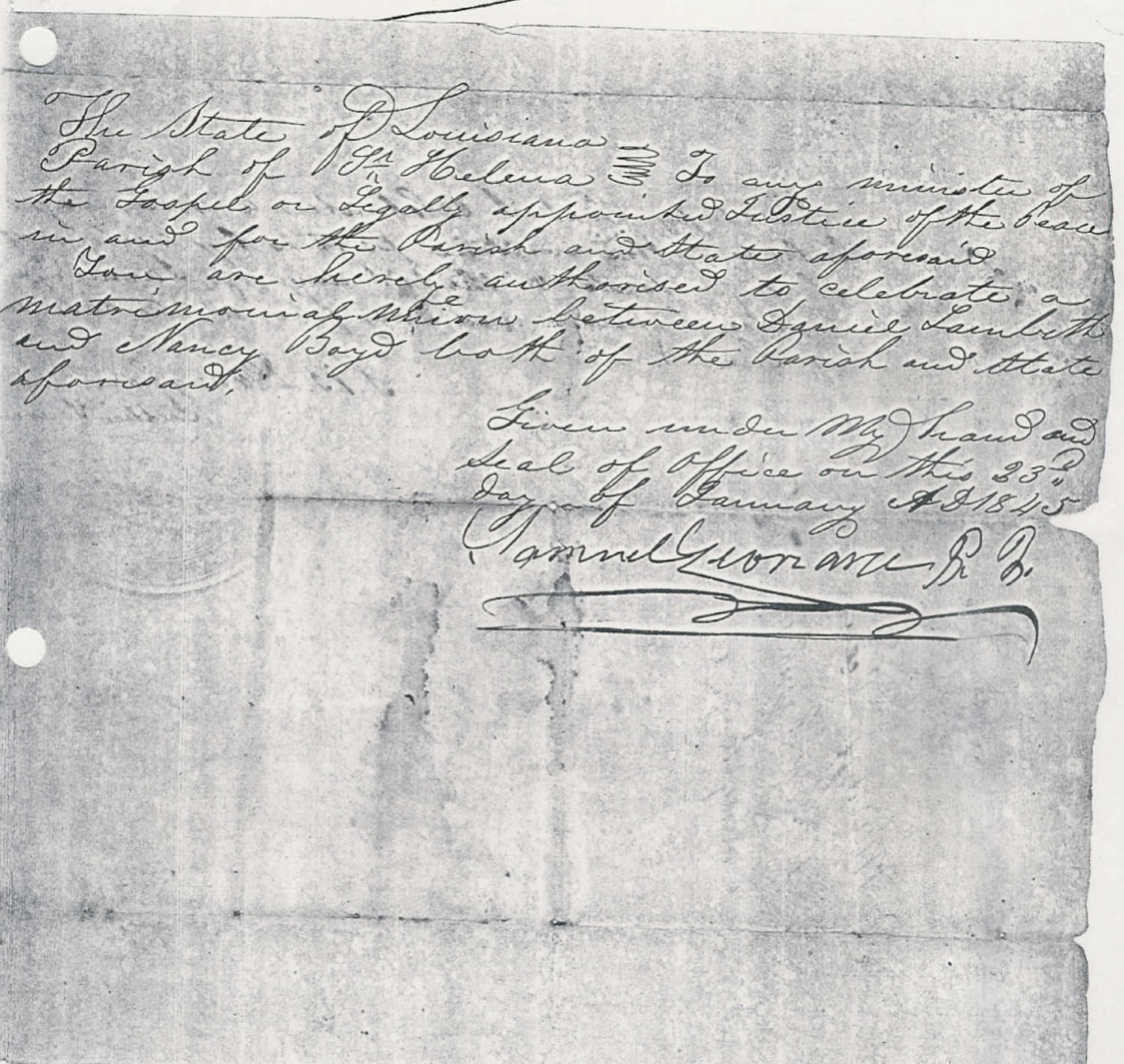 The State of Louisiana
Parish of St Helena To any minister of
the Gospel or Legally appointed Justice of the Peace
in and for the Parish and State aforesaid
You are hereby authorised to celebrate a
matrimonial Union between Daniel Lambeth
and Nancy Boyd both of the Parish and State
aforesaid.
Given under My hand and
Seal of Office on this 23rd
day of January AD 1845
Samuel